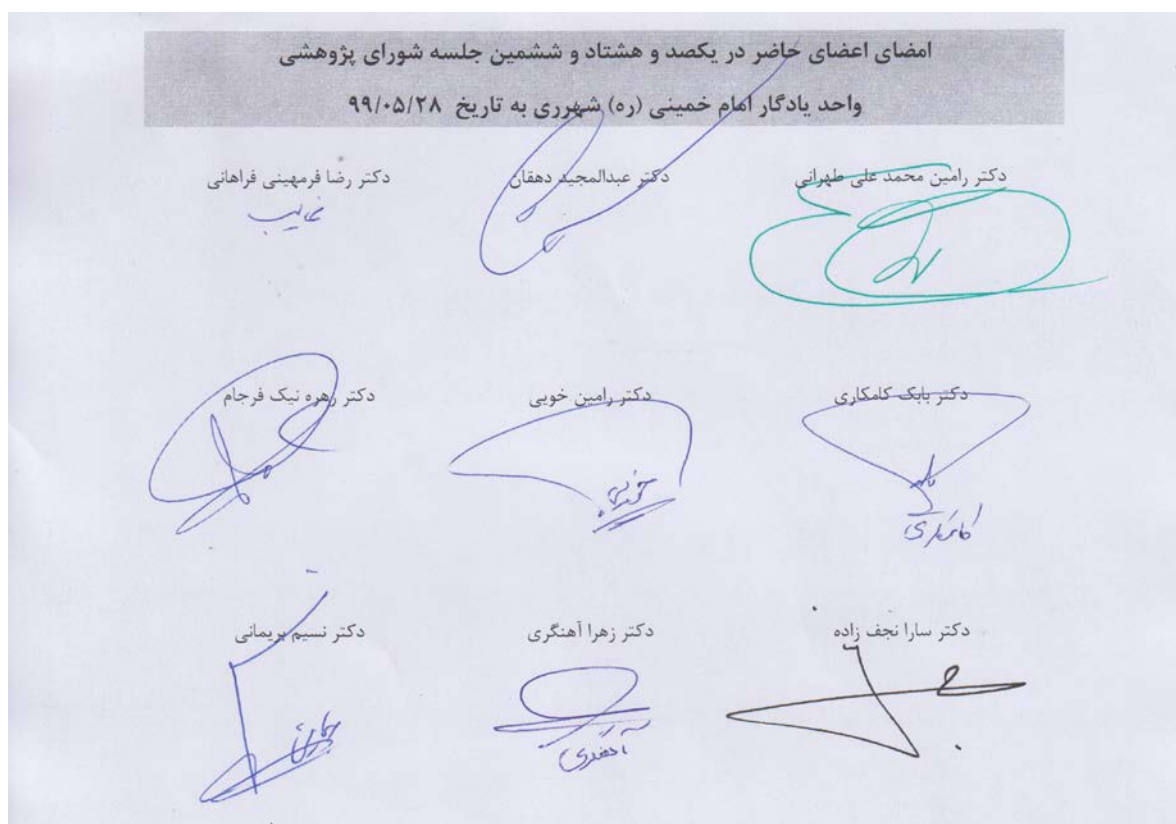 امضای اعضای حاضر در یکصد و هشتاد و ششمین جلسه شورای پژوهشی
واحد یادگار امام خمینی (ره) شهرری به تاریخ ۹۹/۰۵/۲۸
دکتر رامین محمد علی طهرانی دکتر عبدالمجید دهقان دکتر رضا فرمهینی فراهانی
غایب
دکتر بابک کامکاری دکتر رامین خویی دکتر زهره نیک فرجام
خویی
کامکاری
دکتر سارا نجف زاده دکتر زهرا آهنگری دکتر نسیم بریمانی
آهنگری